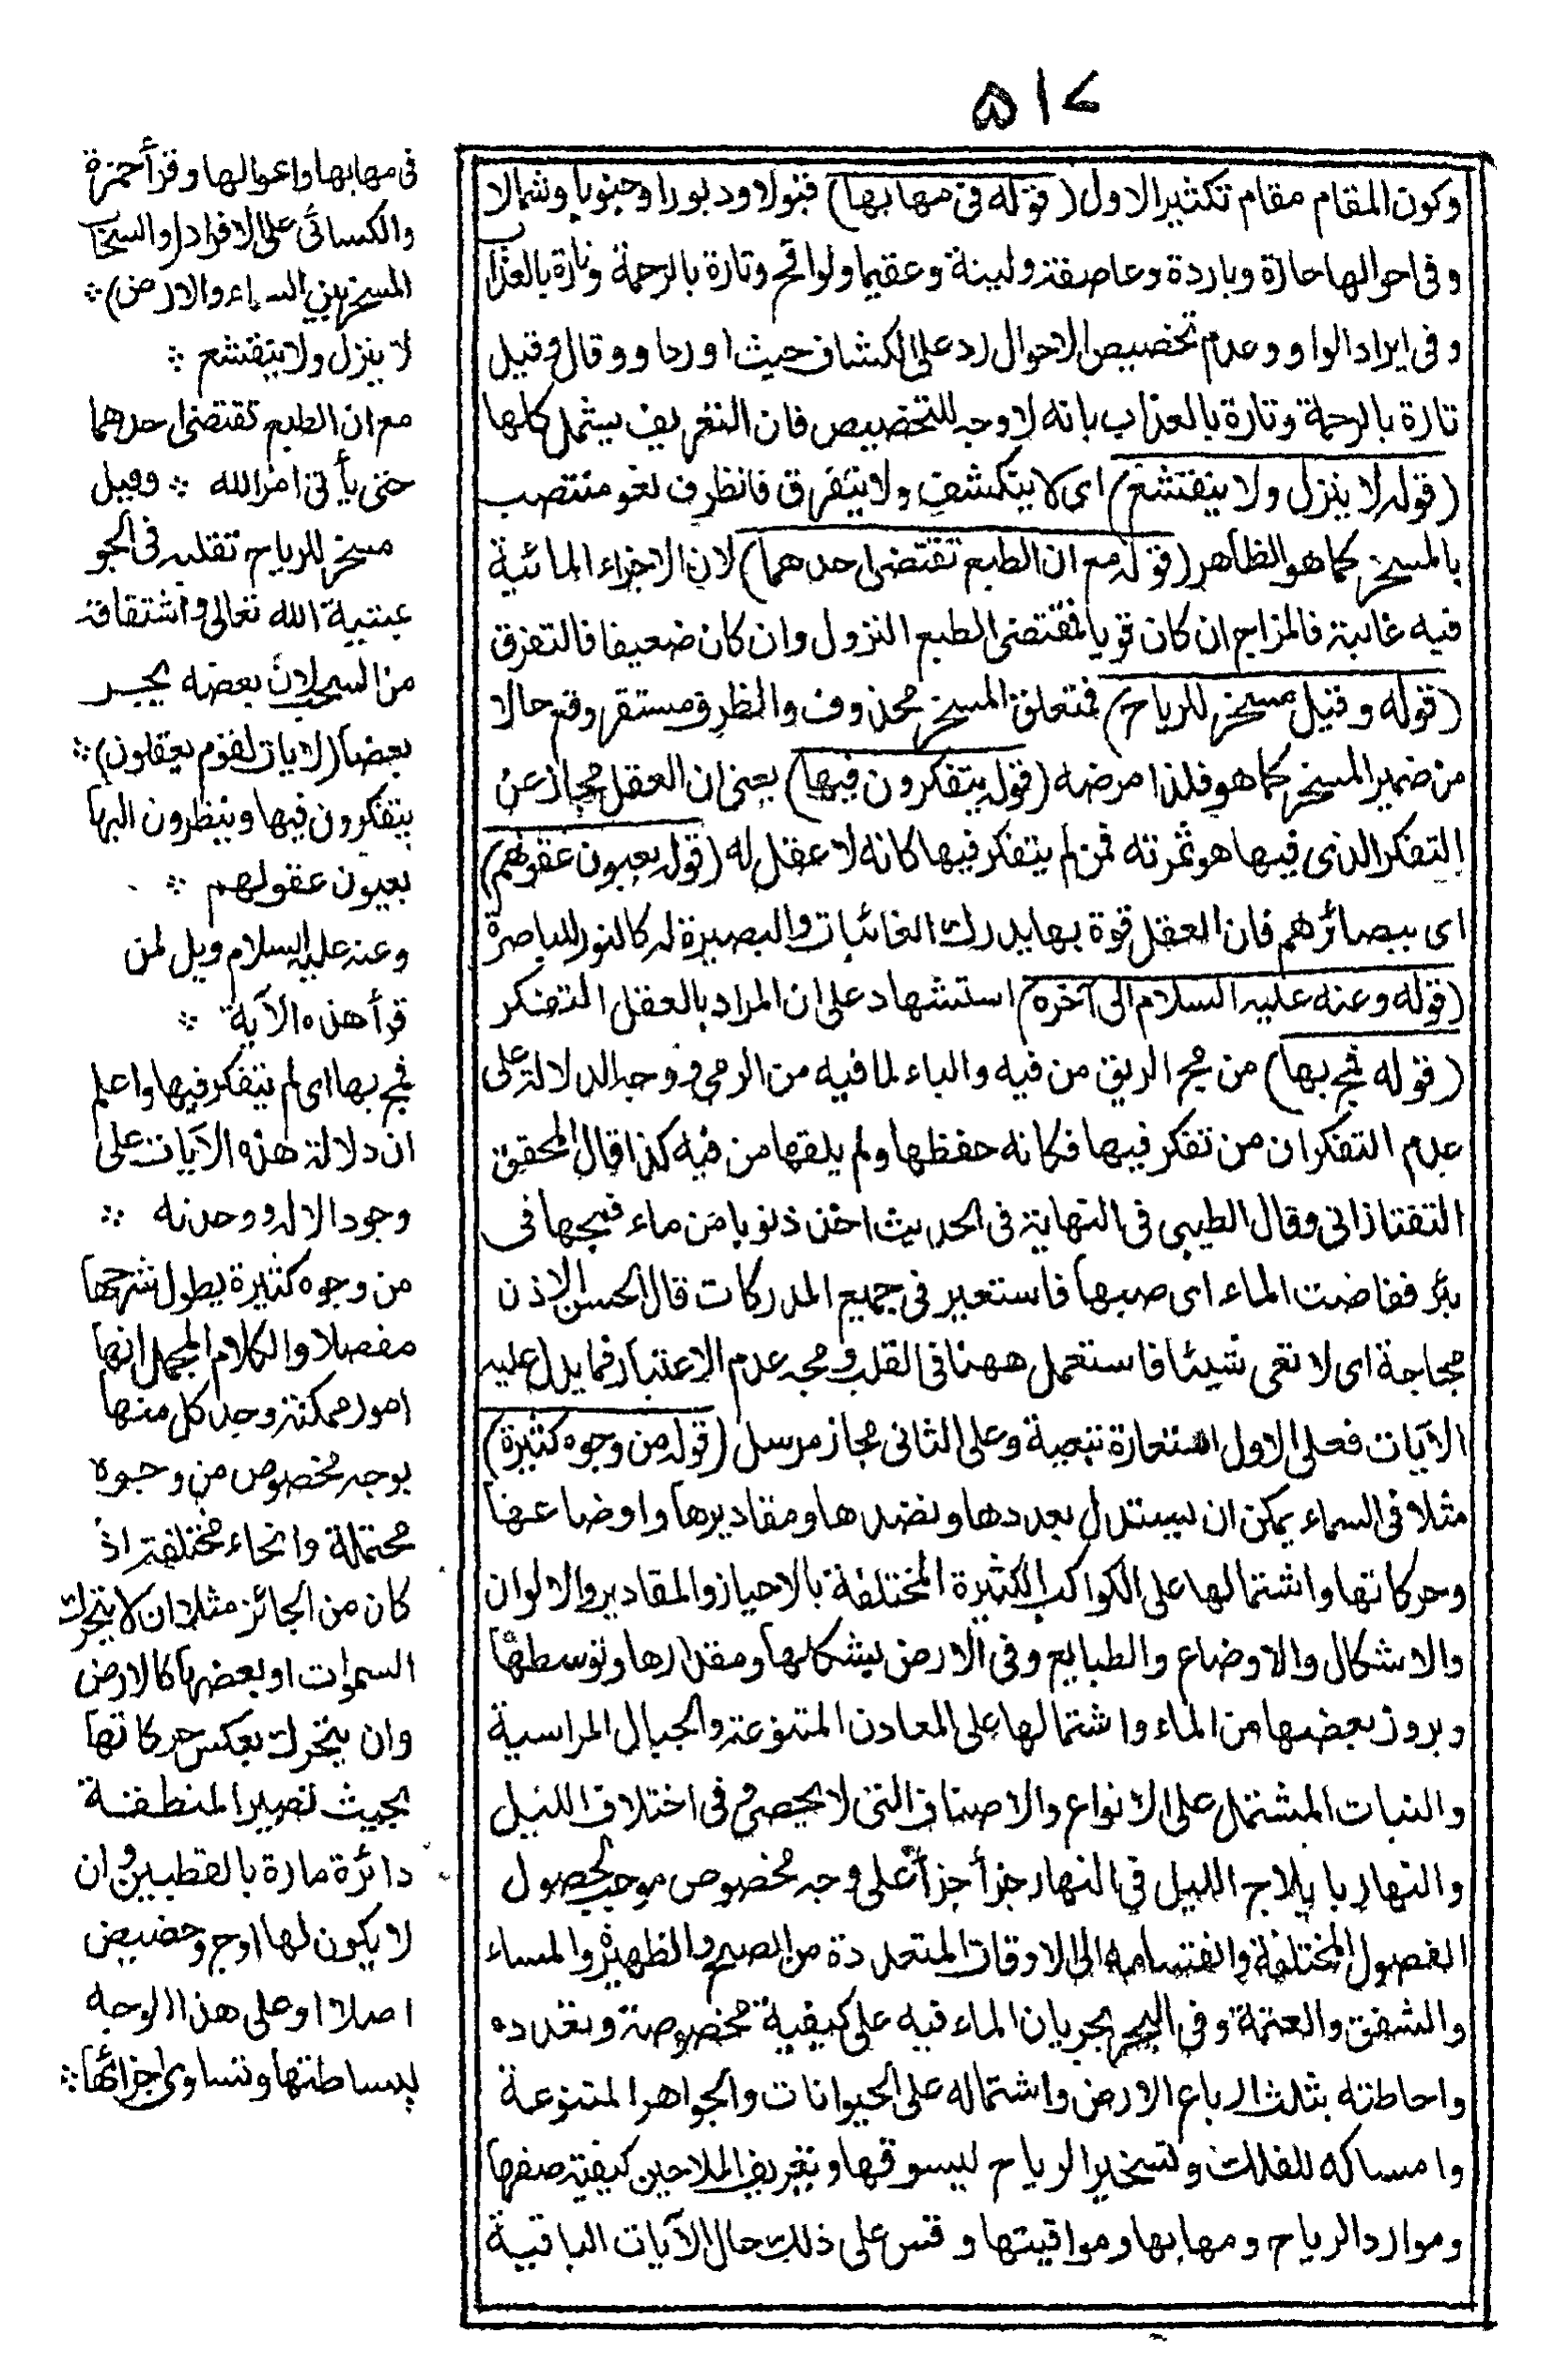 ٥١٧
وكون المقام مقام تكثير الاول (قوله فى مهابها) قبولا ودبورا وجنوبا وشمالا
وفى احوالها حارة وباردة وعاصفة ولينة وعقيما ولواقح وتارة بالرحمة وتارة بالعذاب
وفى ايراد الواو وعدم تخصيص الاحوال رد على الكشاف حيث اورد او وقال وقيل
تارة بالرحمة وتارة بالعذاب بانه لا وجه للتخصيص فان التغريف يشمل كلها
(قوله لا ينزل ولا ينقشع) اى لا ينكشف ولا يتفرق فالظرف لغو منتصب
بالمسخر كما هو الظاهر (قوله مع ان الطبع تقتضى احدهما) لان الاجزاء المائية
فيه غالبة فالمزاج ان كان قويا فمقتضى الطبع النزول وان كان ضعيفا فالتفرق
(قوله وقيل مسخر للرياح) فمتعلق المسخر محذوف والظرف مستقر وقع حالا
من ضمير المسخر كما هو فلذا مرضه (قوله يتفكرون فيها) يعنى ان العقل مجاز عن
التفكر الذى فيها هو ثمرته فمن لم يتفكر فيها كانه لا عقل له (قوله بعيون عقولهم)
اى ببصائرهم فان العقل قوة بها يدرك الغائبات والبصيرة له كالنور للباصرة
(قوله وعنه عليه السلام الى آخره) استشهاد على ان المراد بالعقل التفكر
(قوله فمج بها) من مج الريق من فيه والباء لما فيه من الرمى ووجه الدلالة على
عدم التفكر ان من تفكر فيها فكانه حفظها ولم يلقها من فيه كذا قال المحقق
التفتازانى وقال الطيبى فى النهاية فى الحديث اخذ ذنوبا من ماء فمجها فى
بئر ففاضت الماء اى صبها فاستعير فى جميع المدركات قال الحسن الاذن
مجاجة اى لا تعى شيئا فاستعمل ههنا فى القلب ومجه عدم الاعتبار فما يدل عليه
الآيات فعلى الاول استعارة تبعية وعلى الثانى مجاز مرسل (قوله من وجوه كثيرة)
مثلا فى السماء يمكن ان يستدل بعددها ونضدها ومقاديرها واوضاعها
وحركاتها واشتمالها على الكواكب الكثيرة المختلفة بالاحياز والمقادير والالوان
والاشكال والاوضاع والطبايع وفى الارض بشكلها ومقدارها وتوسطها
وبروز بعضها من الماء واشتمالها على المعادن المتنوعة والجبال الراسية
والنبات المشتمل على الانواع والاصناف التى لا يحصى وفى اختلاف الليل
والنهار بايلاج الليل فى النهار جزأ جزأ على وجه مخصوص موجب لحصول
الفصول المختلفة وانقسامه الى الاوقات المتعددة من الصبح والظهيرة والمساء
والشفق والعتمة وفى البحر بجريان الماء فيه على كيفية مخصوصة وتعدده
واحاطته بثلث ارباع الارض واشتماله على الحيوانات والجواهر المتنوعة
وامساكه للفلك وتسخير الرياح ليسوقها وتعريف الملاحين كيفية صنفها
وموارد الرياح ومهابها ومواقيتها وقس على ذلك حال الآيات الباقية
فى مهابها واحوالها وقرأ حمزة
والكسائى على الافراد (والسحاب
المسخر بين السماء والارض) ؞
لا ينزل ولا ينقشع ؞
مع ان الطبع تقتضى احدهما
حتى يأتى امر الله ؞ وقيل
مسخر للرياح تقلبه فى الجو
بمشية الله تعالى واشتقاقه
من السحب لان بعضه يجر
بعضا (لآيات لقوم يعقلون) ؞
يتفكرون فيها وينظرون اليها
بعيون عقولهم ؞
وعنه عليه السلام ويل لمن
قرأ هذه الآية ؞
فمج بها اى لم يتفكر فيها واعلم
ان دلالة هذه الآيات على
وجود الاله ووحدته ؞
من وجوه كثيرة يطول شرحها
مفصلا والكلام المجمل انها
امور ممكنة وجد كل منها
بوجه مخصوص من وجوه
محتملة وانحاء مختلفة اذ
كان من الجائز مثلا ان لا يتحرك
السموات او بعضها كالارض
وان يتحرك بعكس حركاتها
بحيث تصير المنطقة
دائرة مارة بالقطبين وان
لا يكون لها اوج وحضيض
اصلا او على هذا الوجه
لبساطتها وتساوى اجزائها ؞